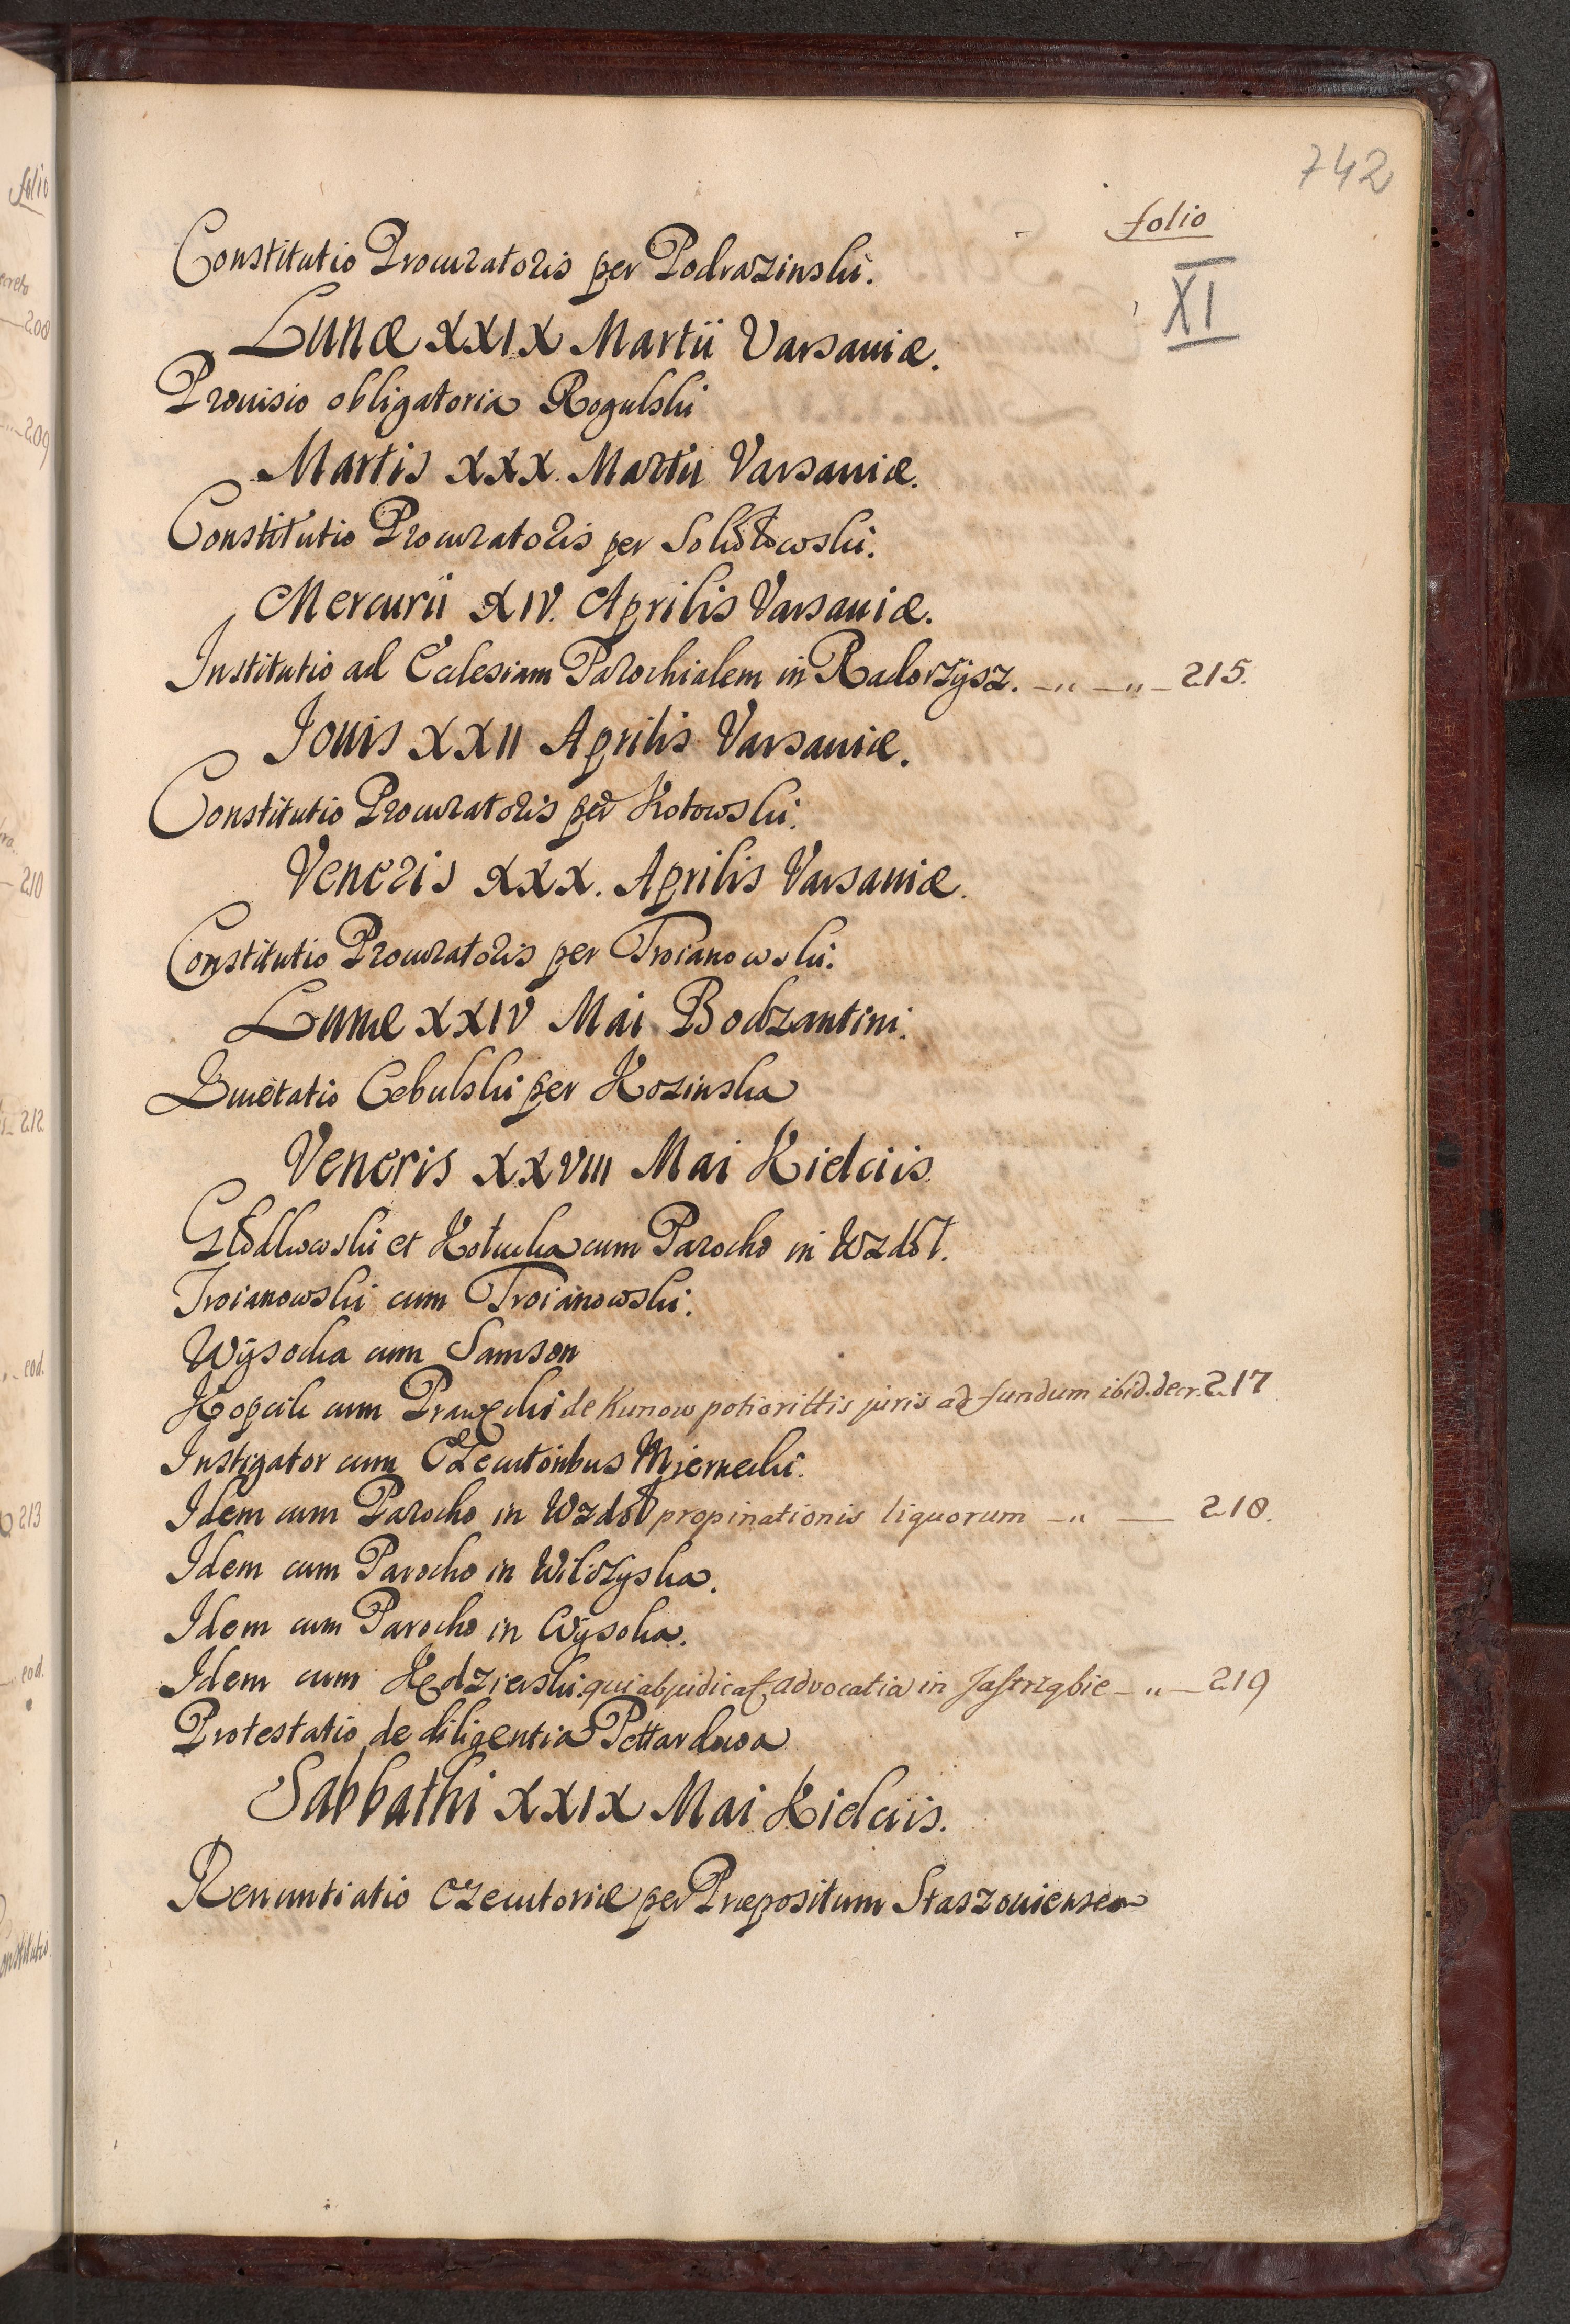 742
folio
XI
Constitutio Procuratoris per Podrazinski.
Lunæ XXIX Martii Varsaviæ.
Provisio obligatoria Rogulski
Martis XXX. Martii Varsaviæ.
Constitutio Procuratoris per
Mercurii XIV. Aprilis Varsauiæ.
Institutio ad Ecclesiam Parochialem in Radoszysz. -„-„- 215.
Iouis XXII Aprilis Varsauiæ.
Constitutio Procuratoris per Kotowski.
Veneris XXX. Aprilis Varsauiæ.
Constitutio Procuratoris per Troianowski.
Lunæ XXIV Mai Bodzantini.
Quietatio Cebulski per Kozinska
Veneris XXVIII Mai Kielciis.
et Kotucka cum Parocho in Wzdół.
Troianowski cum Troianowski.
Wysocka cum Samson
cum Prawęcki de Kunow potiorittis juris ad fundum ibid. decr. 217
Instigator cum Executoribus Miernecki.
Idem cum Parocho in Wzdół propinationis liquorum -„- 218.
Idem cum Parocho in Wilczyska.
Idem cum Parocho in Wysoka.
Idem cum Kędzierski qui abjudicat advocatia in Jastrząbie -„- 219
Protestatio de diligentia
Sabbathi XXIX Mai Kielciis.
Renuntiatio executoriæ per Præpositum Staszouiensem